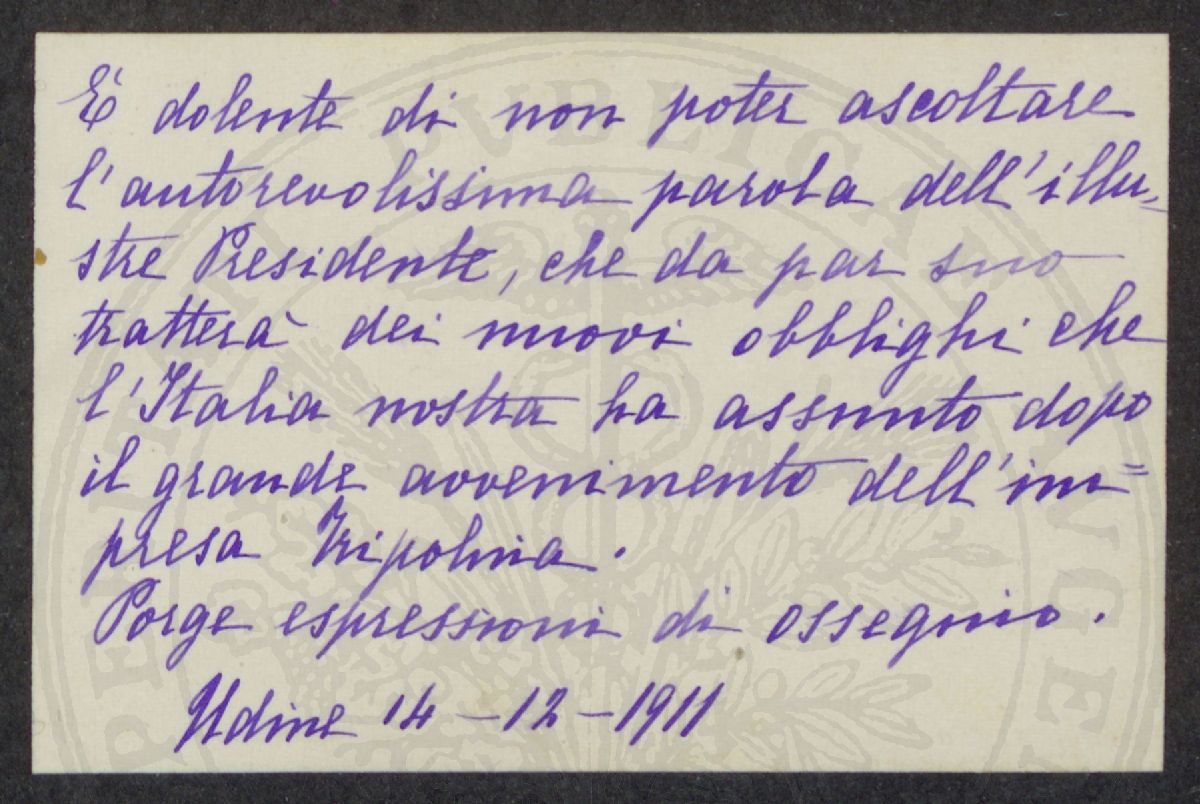 È dolente di non poter ascoltare
l'autorevolissima parola dell'illu-
stre Presidente, che da par suo
tratterà dei nuovi obblighi che
l'Italia nostra ha assunto dopo
il grande avvenimento dell'im=
presa Tripolina.
Porge espressioni di ossequio.
Udine 14-12-1911